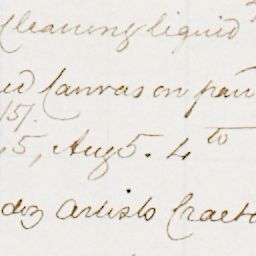 Cleaning liquid
ed Canvas on pan
151.
5, Aug 5. 4 to
doz Artists